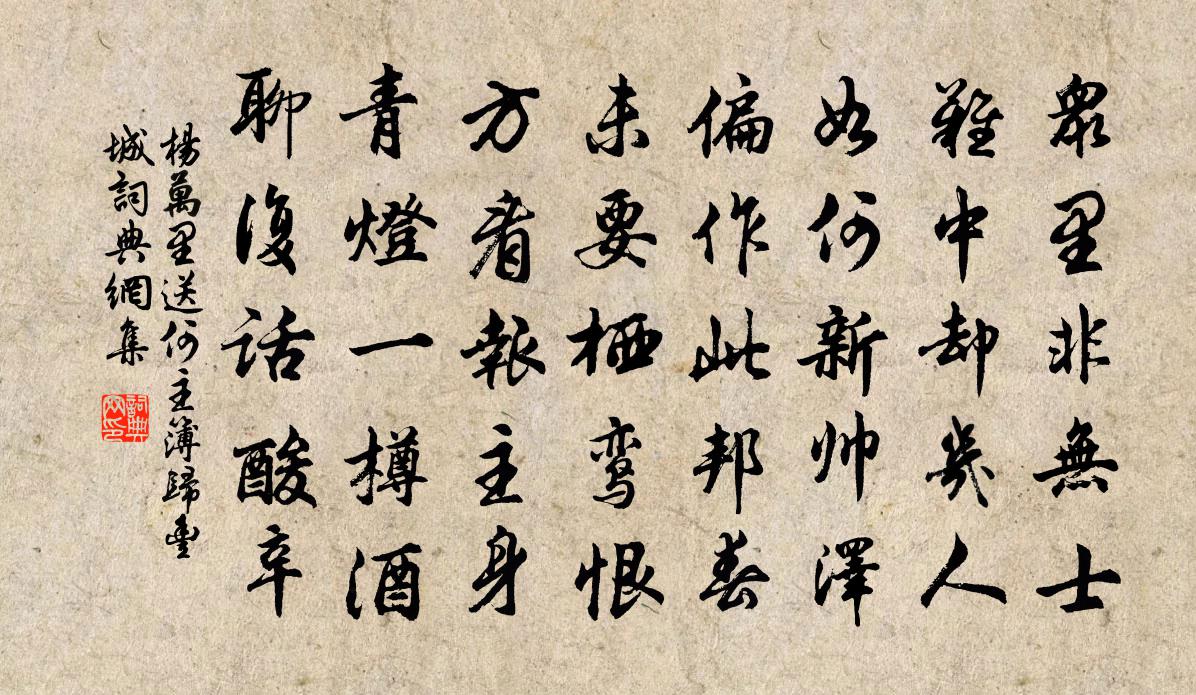 眾里非無士
難中却幾人
如何新帅澤
偏作此邦春
未要栖鸾恨
方看報主身
青燈一樽酒
聊復話酸辛
楊萬里送何主簿歸豊
城詞典網集
詞典网印